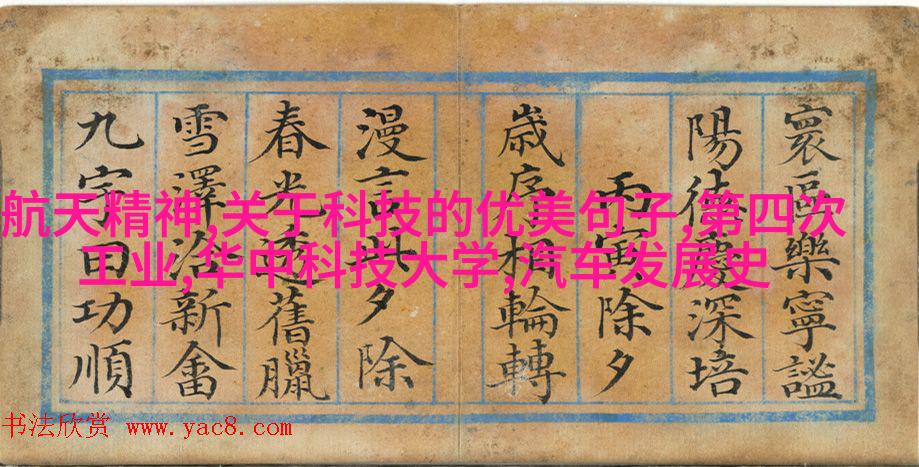 寰區樂寧謐
陽德深培
丙寅除夕
歲序相輪轉
漫言此夕除
春光透舊臘
雪澤洽新畬
九宇田功順
航天精神,关于科技的优美句子,第四次
工业,华中科技大学,汽车发展史
书法欣赏 www.yac8.com